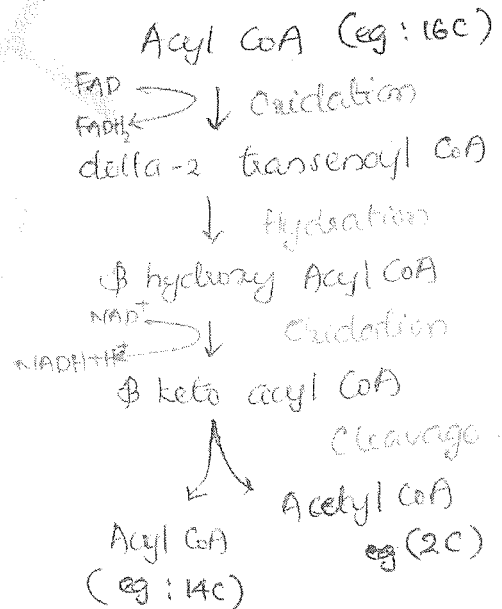 Acyl CoA (eg : 16C)
FAD
Oxidation
FADH₂
della-2 transenoyl CoA
Hydration
β hydroxy Acyl CoA
NAD⁺
Oxidation
NADH+H⁺
β keto acyl CoA
Cleavage.
Acyl CoA
(eg : 14C)
Acetyl CoA
eg (2C)